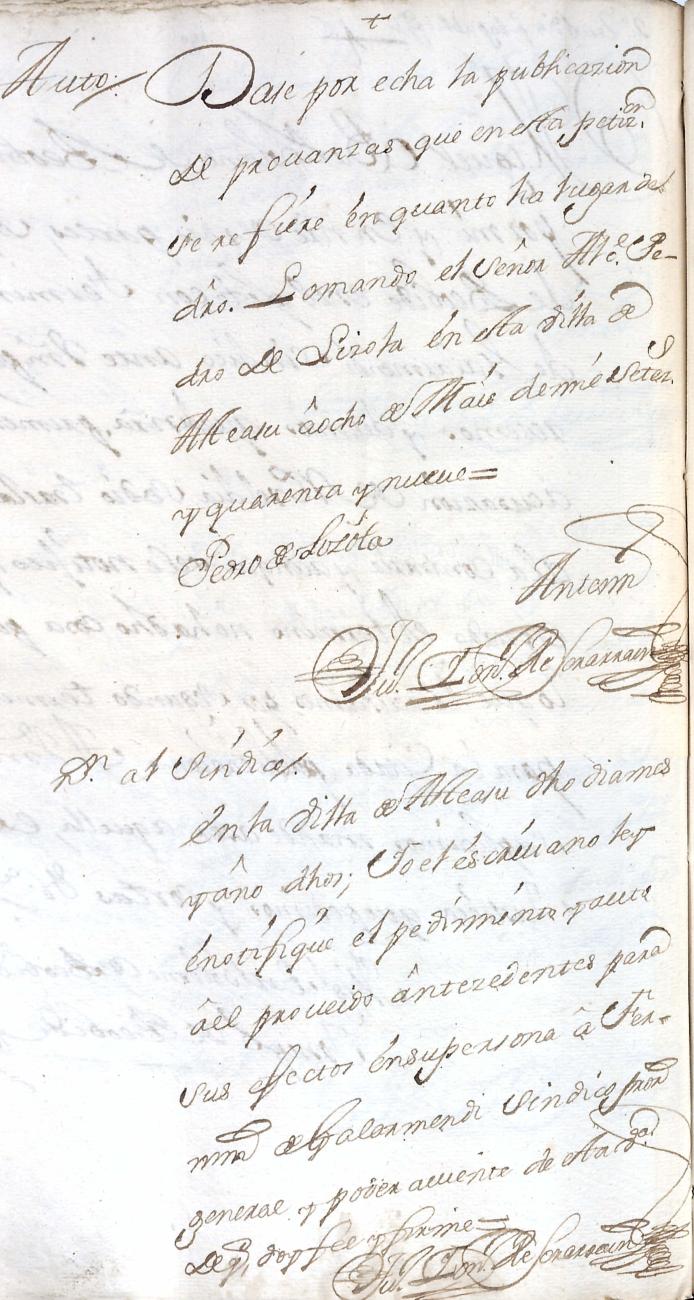 +
Auto. Dase por echa la publicazion
de provanzas que en esta petizon.
se refiere en quanto ha lugar de
dro. Lo mando el señor Alc.e Pe-
dro de Lizola en esta villa de
Alcasu â ocho de Maio de mil Setez.
y quarenta y nueve=
Pedro de Lizola
Antemi
Non al Síndico.
En la villa de Alcasu dho dia mes
y año dhos; Yo el escrivano ley
é notifiqué el pedimiento y auto
â el proveido ântezedentes para
sus efectos én su persona â Fer-
min de Galarmendi Sindico pror
general y poder aviente de esta va
de q. doy fee y firme=